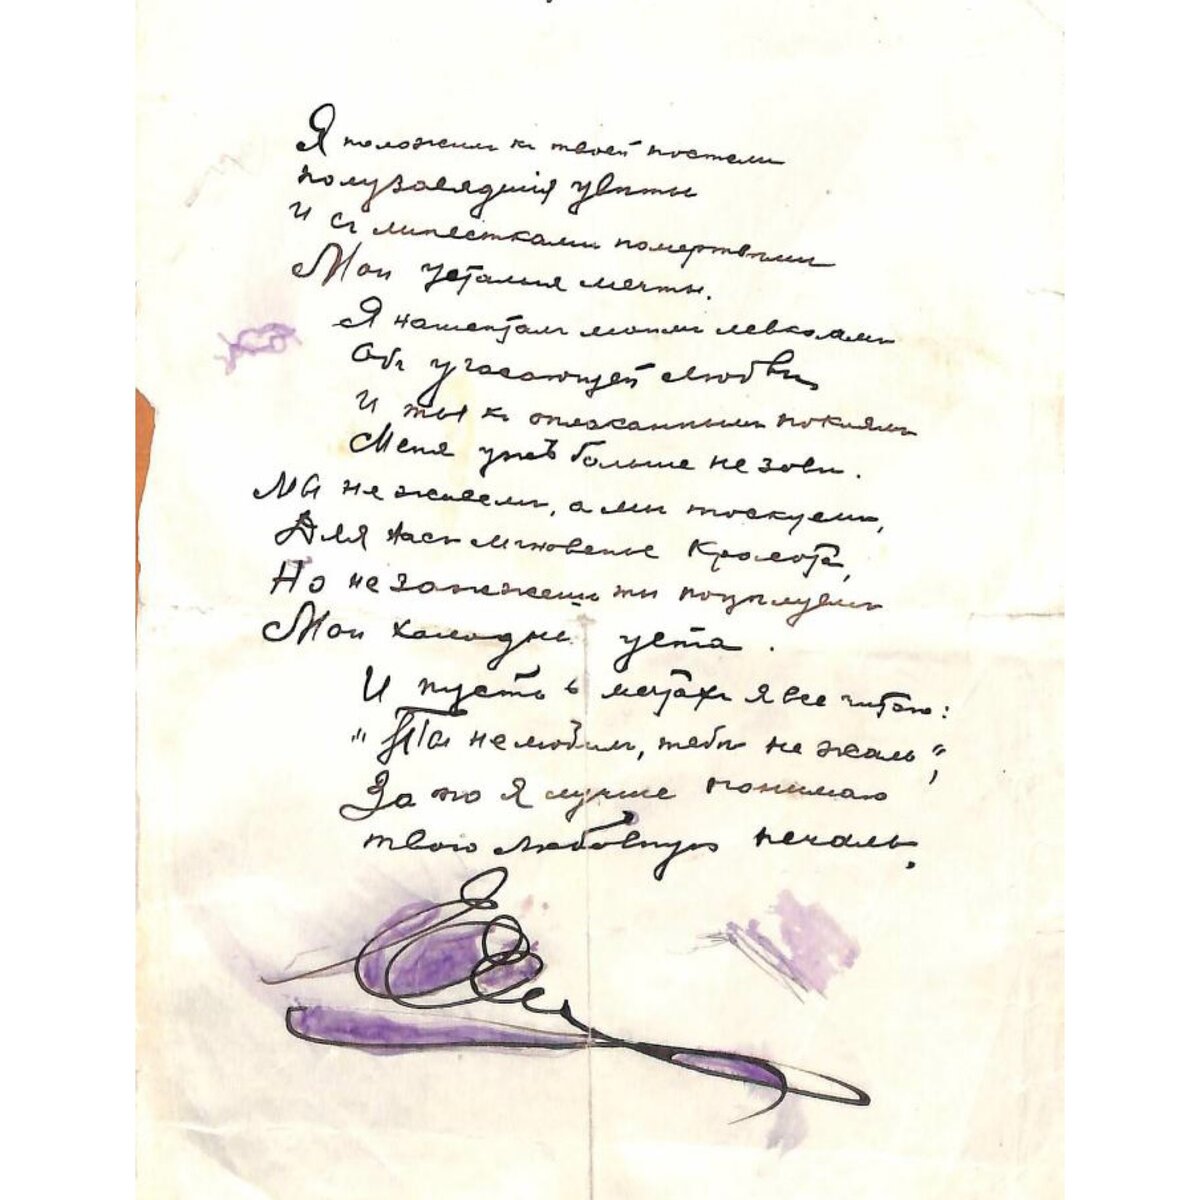 Я положил к твоей постели
полузавядшія цвѣты
И съ липестками помертвѣли
Мои усталыя мечты.
Я нашепталъ моимъ левкоямъ
Объ угасающей любви
И ты къ оплаканнымъ покоямъ
Меня ужъ больше не зови.
Мы не живемъ, а мы тоскуемъ,
Для насъ мгновенье Красота,
Но не зажжешь ты поцѣлуемъ
Мои холодны уста.
И пусть в мечтахъ я все читаю:
"Ты не любил, тебѣ не жаль",
За то я лучше понимаю
твою любовную печаль.